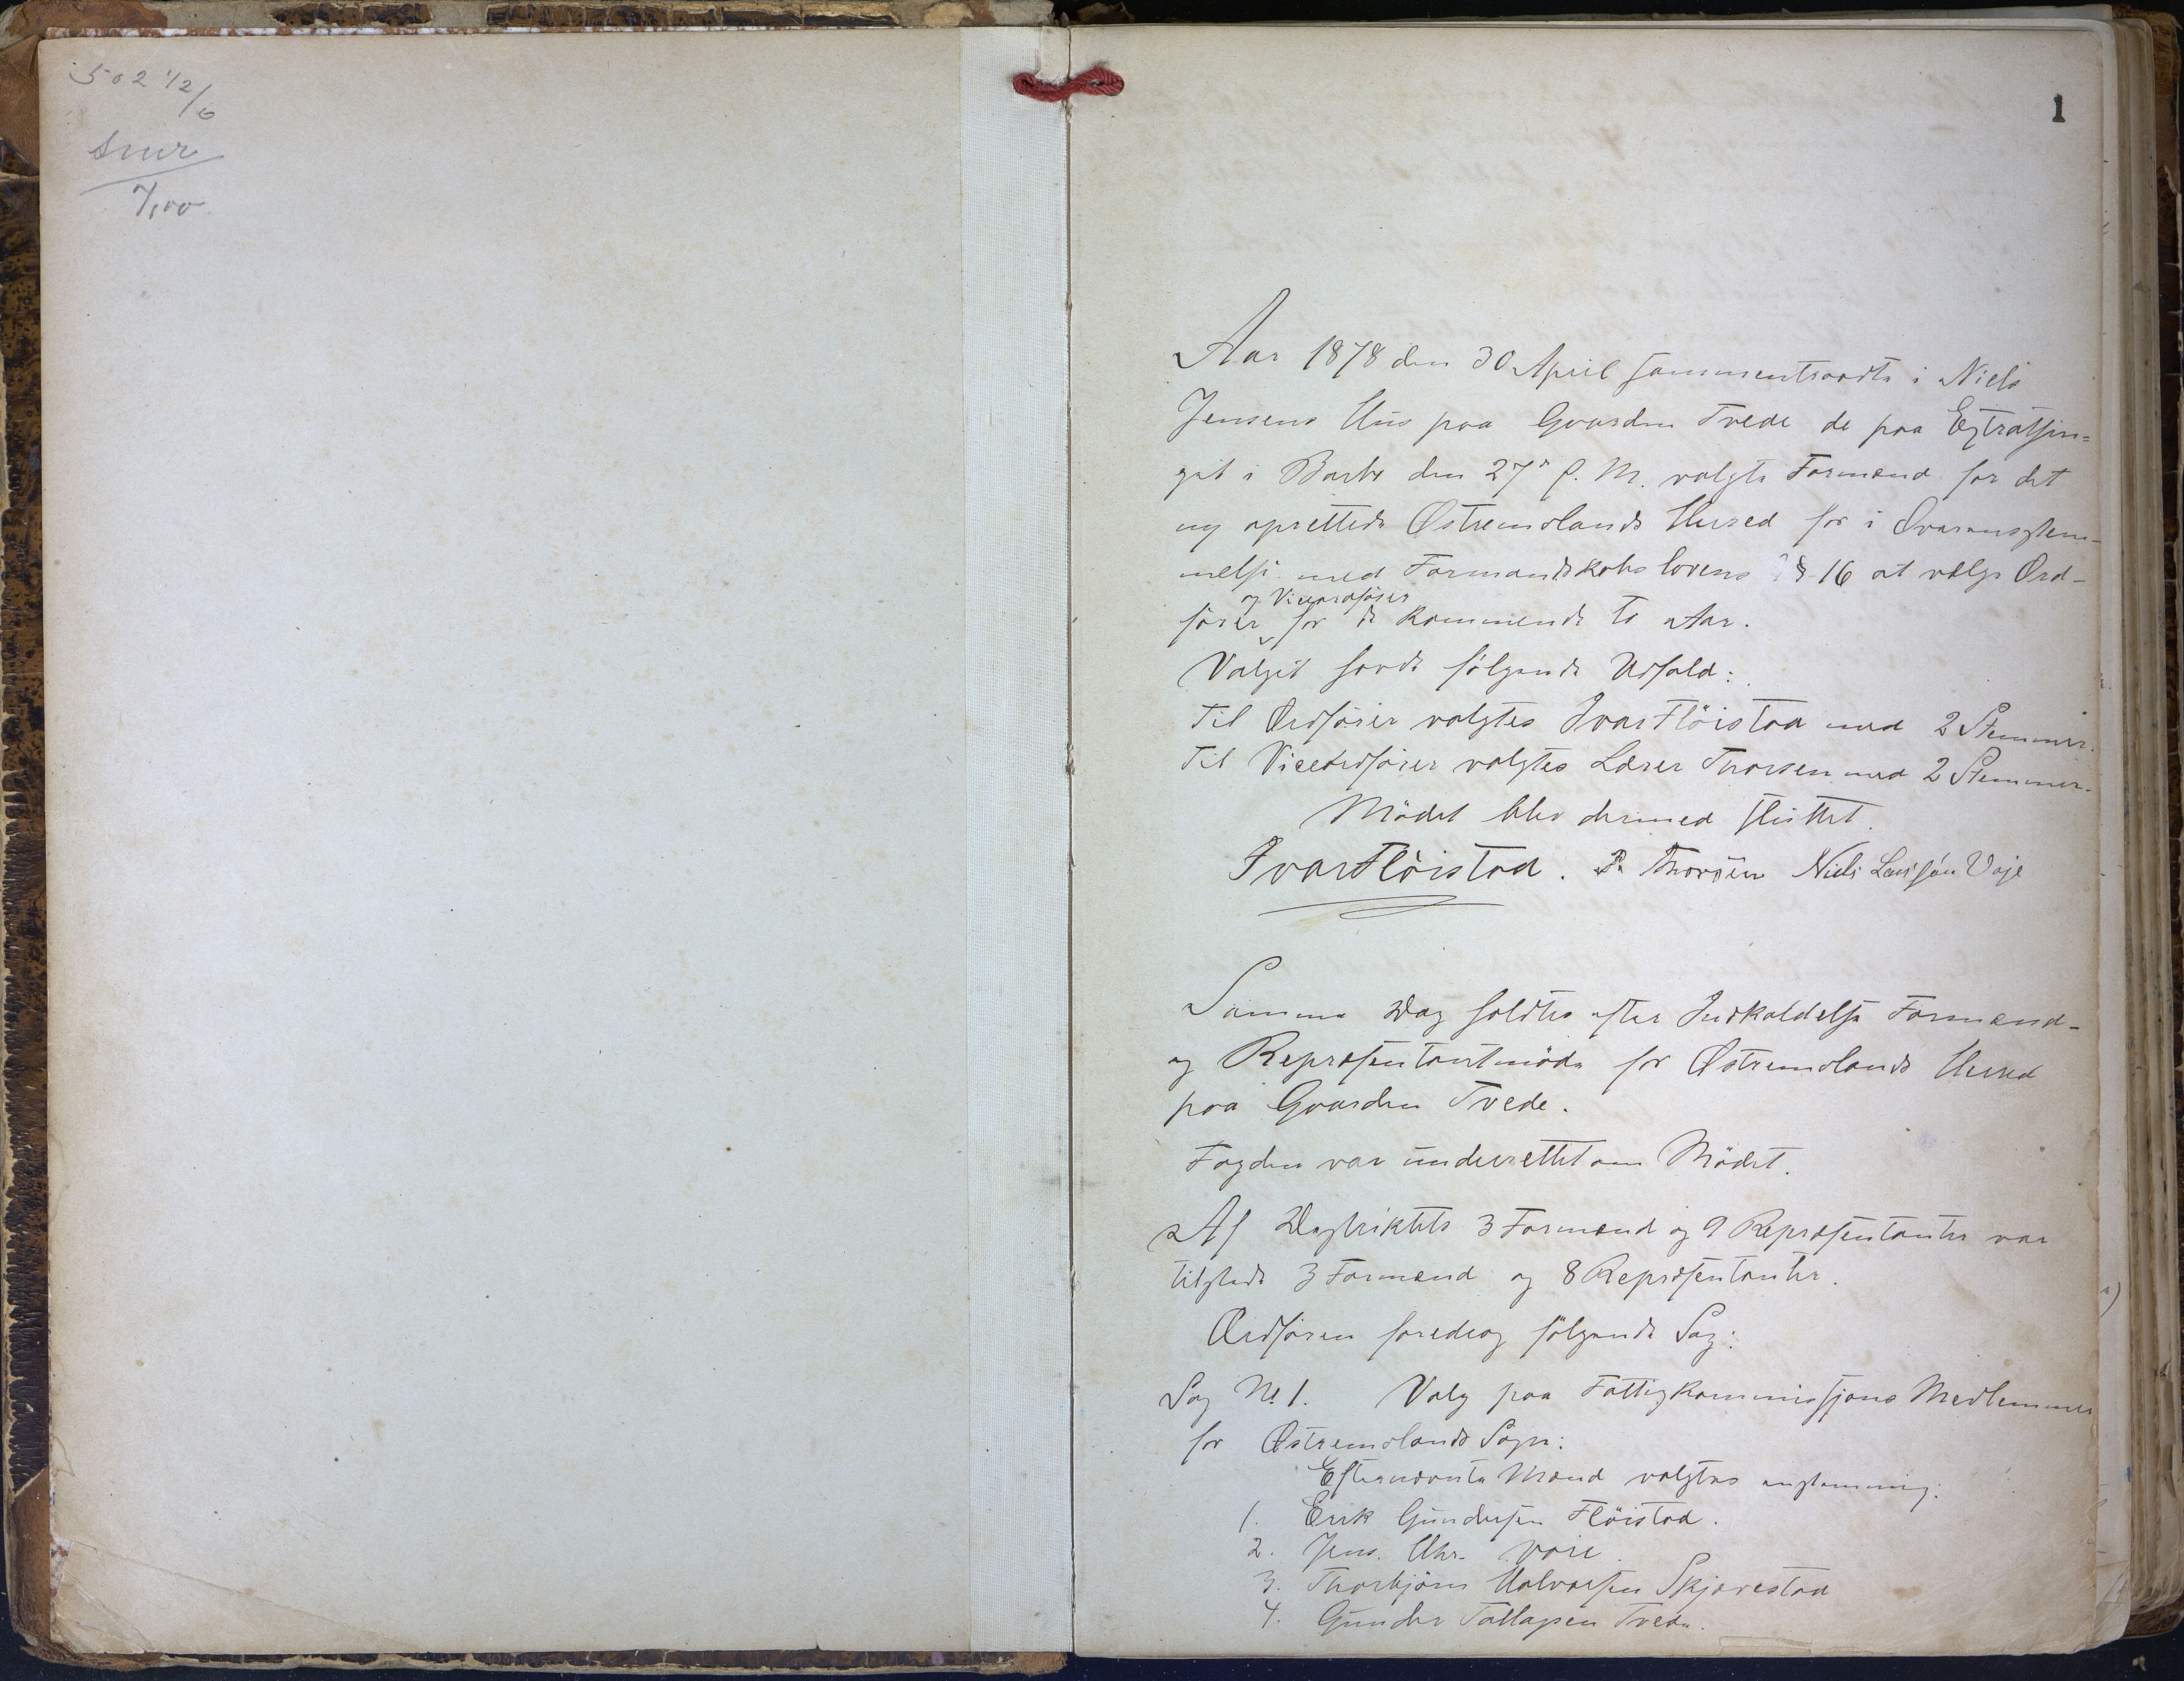 502 1/2
/6
snur
7,00
1
Aar 1878 den 30 April sammentraadte i Niels
Jensens Hus paa Gaarden Tvede de paa Extrathin=
get i Barbo den 27de f. M. valgte Formænd for det
ny oprettede Østremolands Herred for i Overensstem-
melse med Formandskabslovens § 16 at vælge Ord-
og Viceordfører
fører for de kommende to Aar.
Valget havde følgende Udfald:
Til Ordfører valgtes Ivar Flöistad med 2 Stemmer.
Til Viceordfører valgtes Lærer Thorsen med 2 Stemmer.
Mödet blev dermed sluttet.
Ivar Flöistad. P. Thorsen Niels Larssön Voje
Samme Dag holdtes efter Indkaldelse Formænd-
og Repræsentantmöde for Østremolands Herred
paa Gaarden Tvede.
Fogden var underrettet om Mödet.
Af Destriktets 3 Formænd og 9 Repræsentanter var
tilstede 3 Formænd og 8 Repræsentanter.
Ordføren foredrog fölgende Sag:
Sag No 1. Valg paa Fattigkommissjons Medlemmer
for Østremolands Sogn:
Efternævnte Mænd valgtes enstemmig:
1. Erik Gundersen Flöistad.
2. Jens Chr. Voie.
3. Thorbjörn Halvorsen Skjævestad
4. Gunder Tallagsen Tvede.